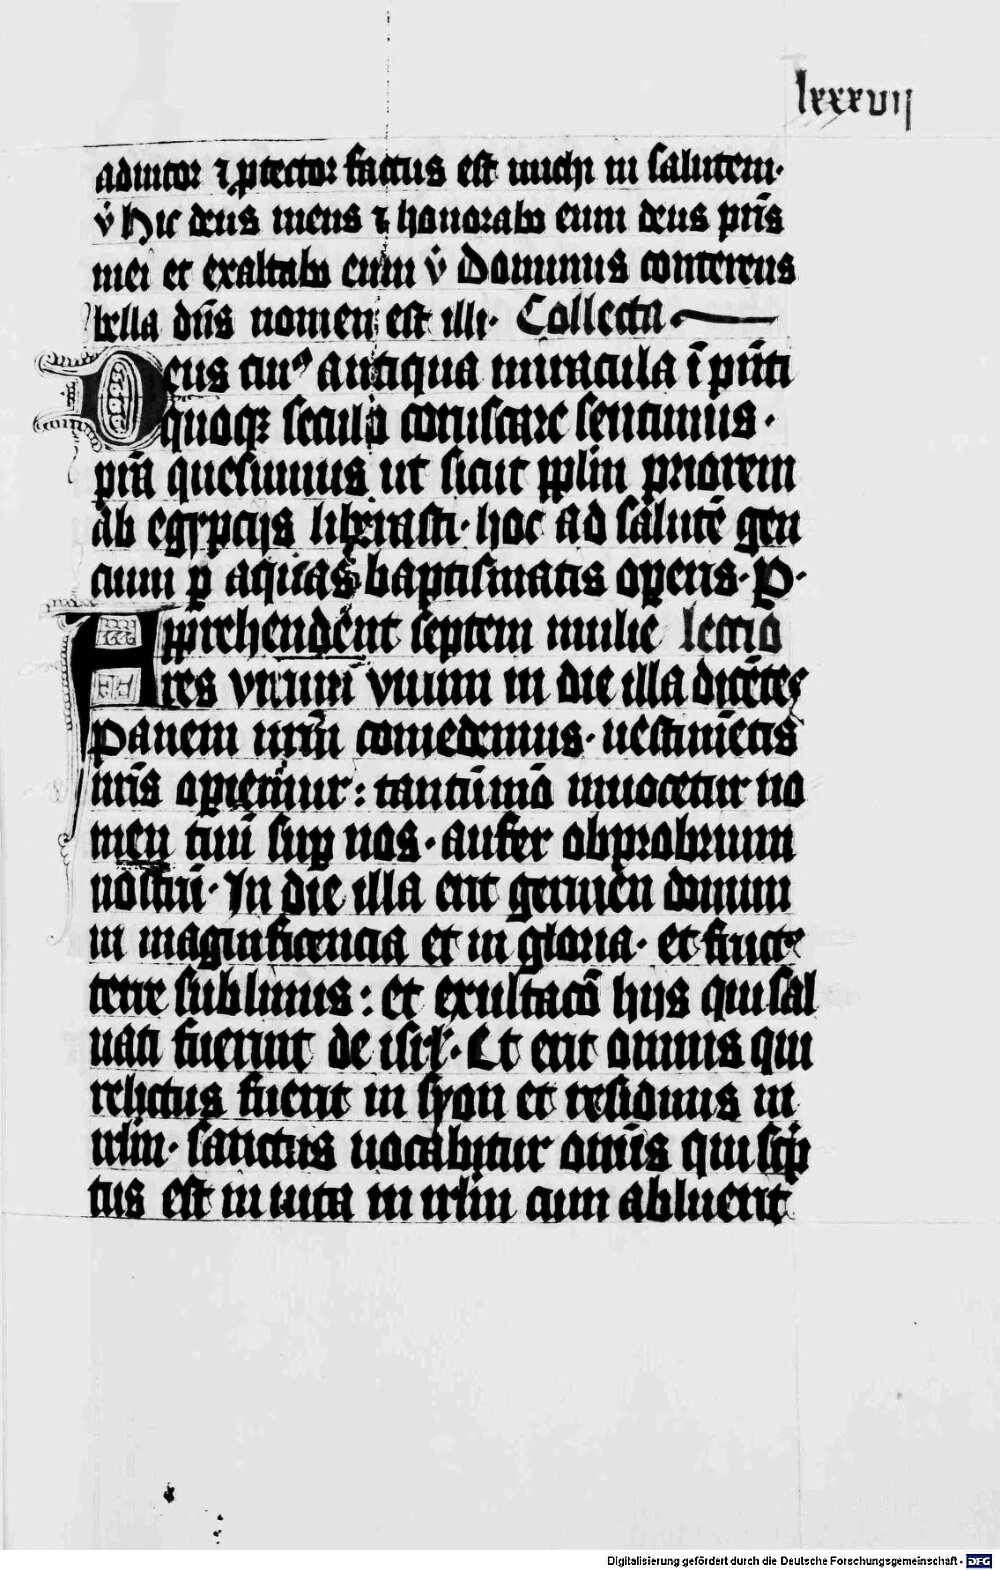 lxxxvij
adiutor ⁊ ꝓtector factus est michi in salutem·
v̇ Hic deus meus ⁊ honorabo eum deus pr̄is
mei et exaltabo eum v̇ Dominus conterens
bella dn̄s nomen est illi· Collecta
Deus cuiꝰ antiqua miracula ī pn̄ti
quoqꝫ seculo coruscare sentimus·
pr̄a quesumus ut sicut pp̄lm priorem
ab egypcijs liberasti· hoc ad salutē gen
cium ꝑ aquas baptismatis oꝑeris· P·
Apprehendent septem mulie lectio
res virum vnum in die illa dicētes
Panem nr̄m comedemus· uestimētis
nr̄is oꝑiemur: tantūmō inuocetur no
men tuū suꝑ nos· aufer obprobrium
nostrū· In die illa erit germen domini
in magnificencia et in gloria· et fructꝰ
terre sublimis: et exultacō hijs qui sal
uati fuerint de isrl̄· Et erit omnis qui
relictus fuerit in syon et residuus in
irl̄m· sanctus uocabitur om̄is qui scͥp
tus est in uita in irl̄m cum abluerit
Digitalisierung gefördert durch die Deutsche Forschungsgemeinschaft - DFG